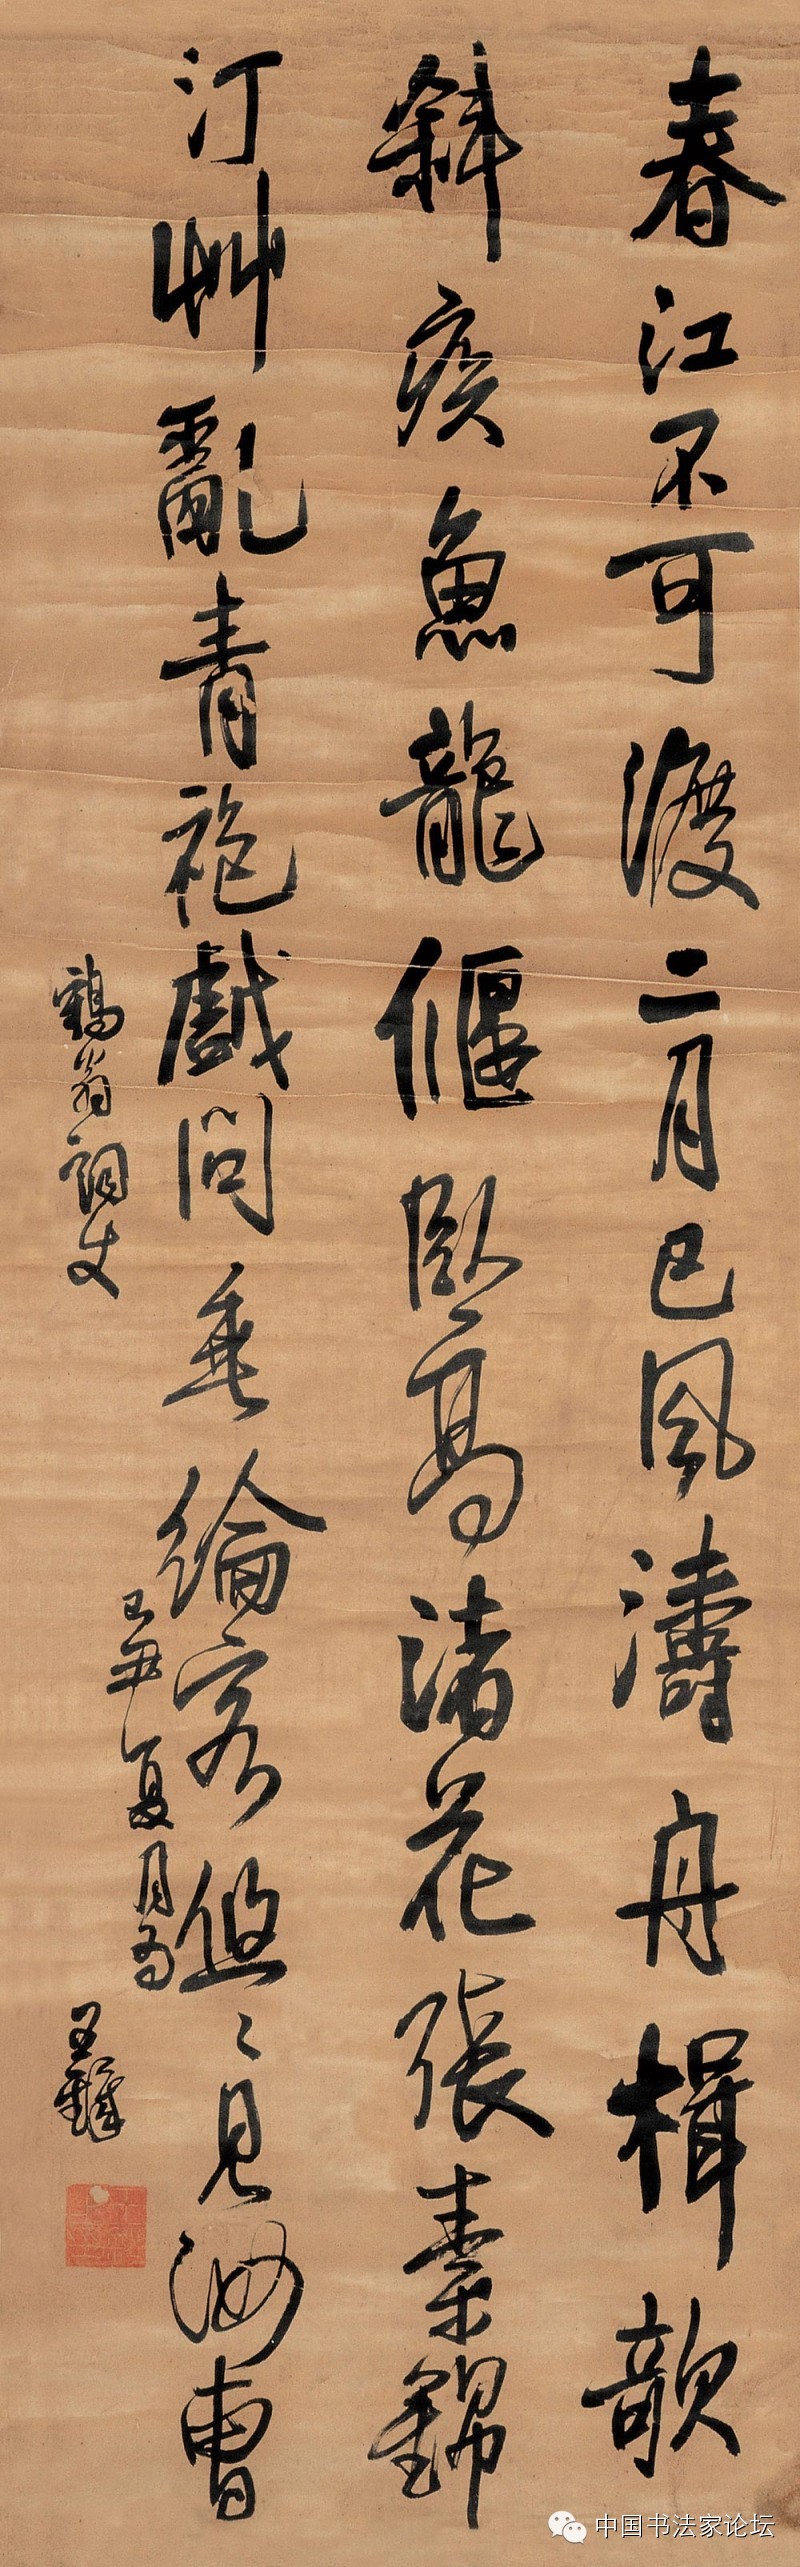 春江不可渡二月已風濤舟楫欹
斜疾魚龍偃臥高渚花張素錦
汀艸亂青袍戲問垂綸客悠〻見汝曹
鶴翁詞丈
己丑夏月為
王鐸
中国书法家论坛